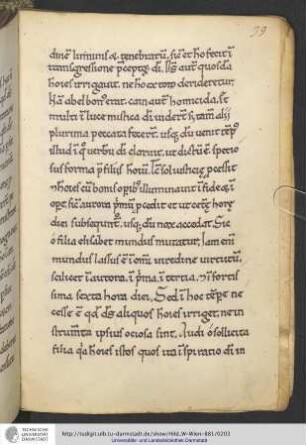 39
dinē luminis & tenebrarū, sic & ho fecit ī
transgressione p̄ceptꝫ di. Sꝫ aut quosdā
hoies irrigauit. ne ho ex toto derideretur.
Nā abel bonꝰ erat. cain aut homicida. &
multi ī luce mistica dī uidert. & tam alii
plurima peccata fecert. usqꝫ dū uenit tēpꝰ
illud ī q̄ uerbū dī claruit. ut dictū ē. specio
sus forma p̄ filiis hom̄. Tc̄ sol iusticię pcessit
& hoies cū bonis opibꝰ illuminauit ī fide & ī
ope. sic aurora p̄mū pcedit & ut ceterę horę
diei subsequnt. usqꝫ dū nox accedat. Sic
o filia elisabet mundus mutatur. Iam eni
mundus lassus ē ī omi uiredine uirtutū.
scilicet ī aurora. ī p̄ma. ī tertia. & ī fortis
sima sexta hora diei. Sed ī hoc tēpꝰe ne
cesse ē qd ds aliquos hoies irriget. ne in
strumta ipsius ociosa sint. Audi o sollicita
filia qa hoies istos quos ita īspiratio dī in
TECHNISCHE
UNIVERSITÄT
DARMSTADT
http://tudigit.ulb.tu-darmstadt.de/show/Hild.W-Wien-881/0203
Universitäts- und Landesbibliothek Darmstadt